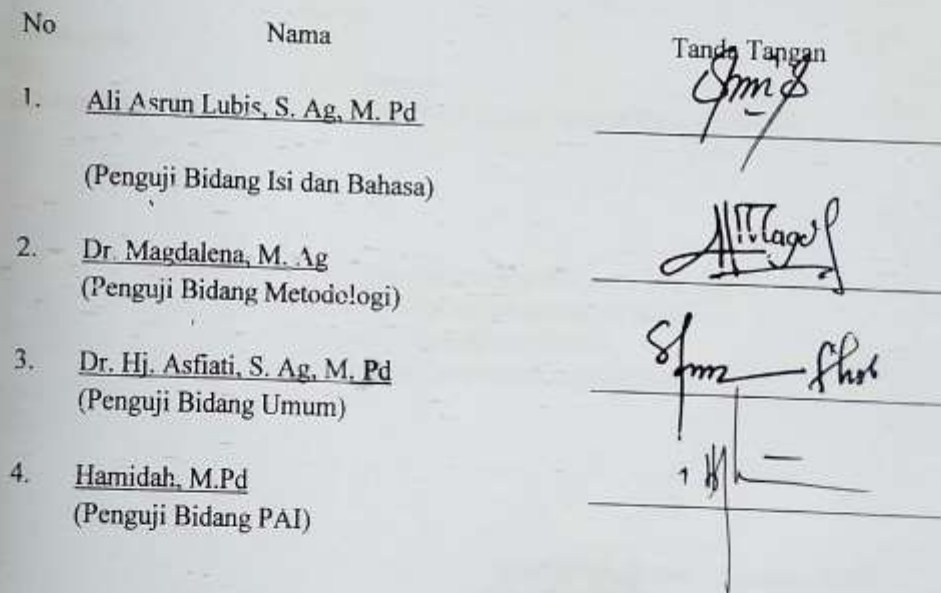 No Nama Tanda Tangan
1. Ali Asrun Lubis, S. Ag, M. Pd
(Penguji Bidang Isi dan Bahasa)
2. Dr. Magdalena, M. Ag
(Penguji Bidang Metodologi)
3. Dr. Hj. Asfiati, S. Ag, M. Pd
(Penguji Bidang Umum)
4. Hamidah, M.Pd
(Penguji Bidang PAI)